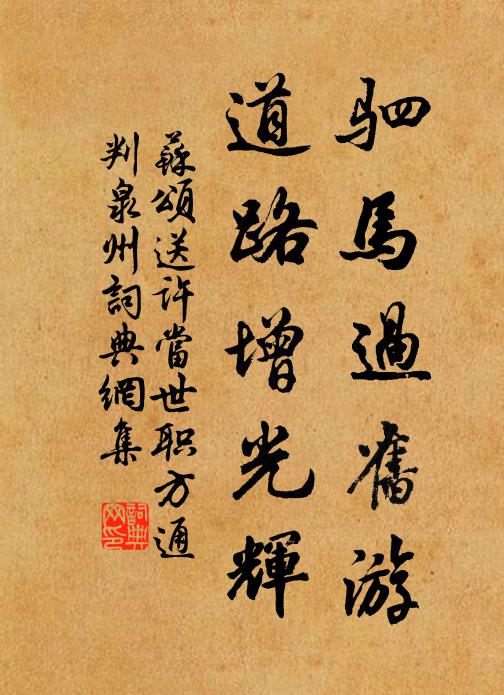 驷馬過舊游
道路增光輝
蘇頌送許當世职方通
判泉州詞典網集
詞典
网印